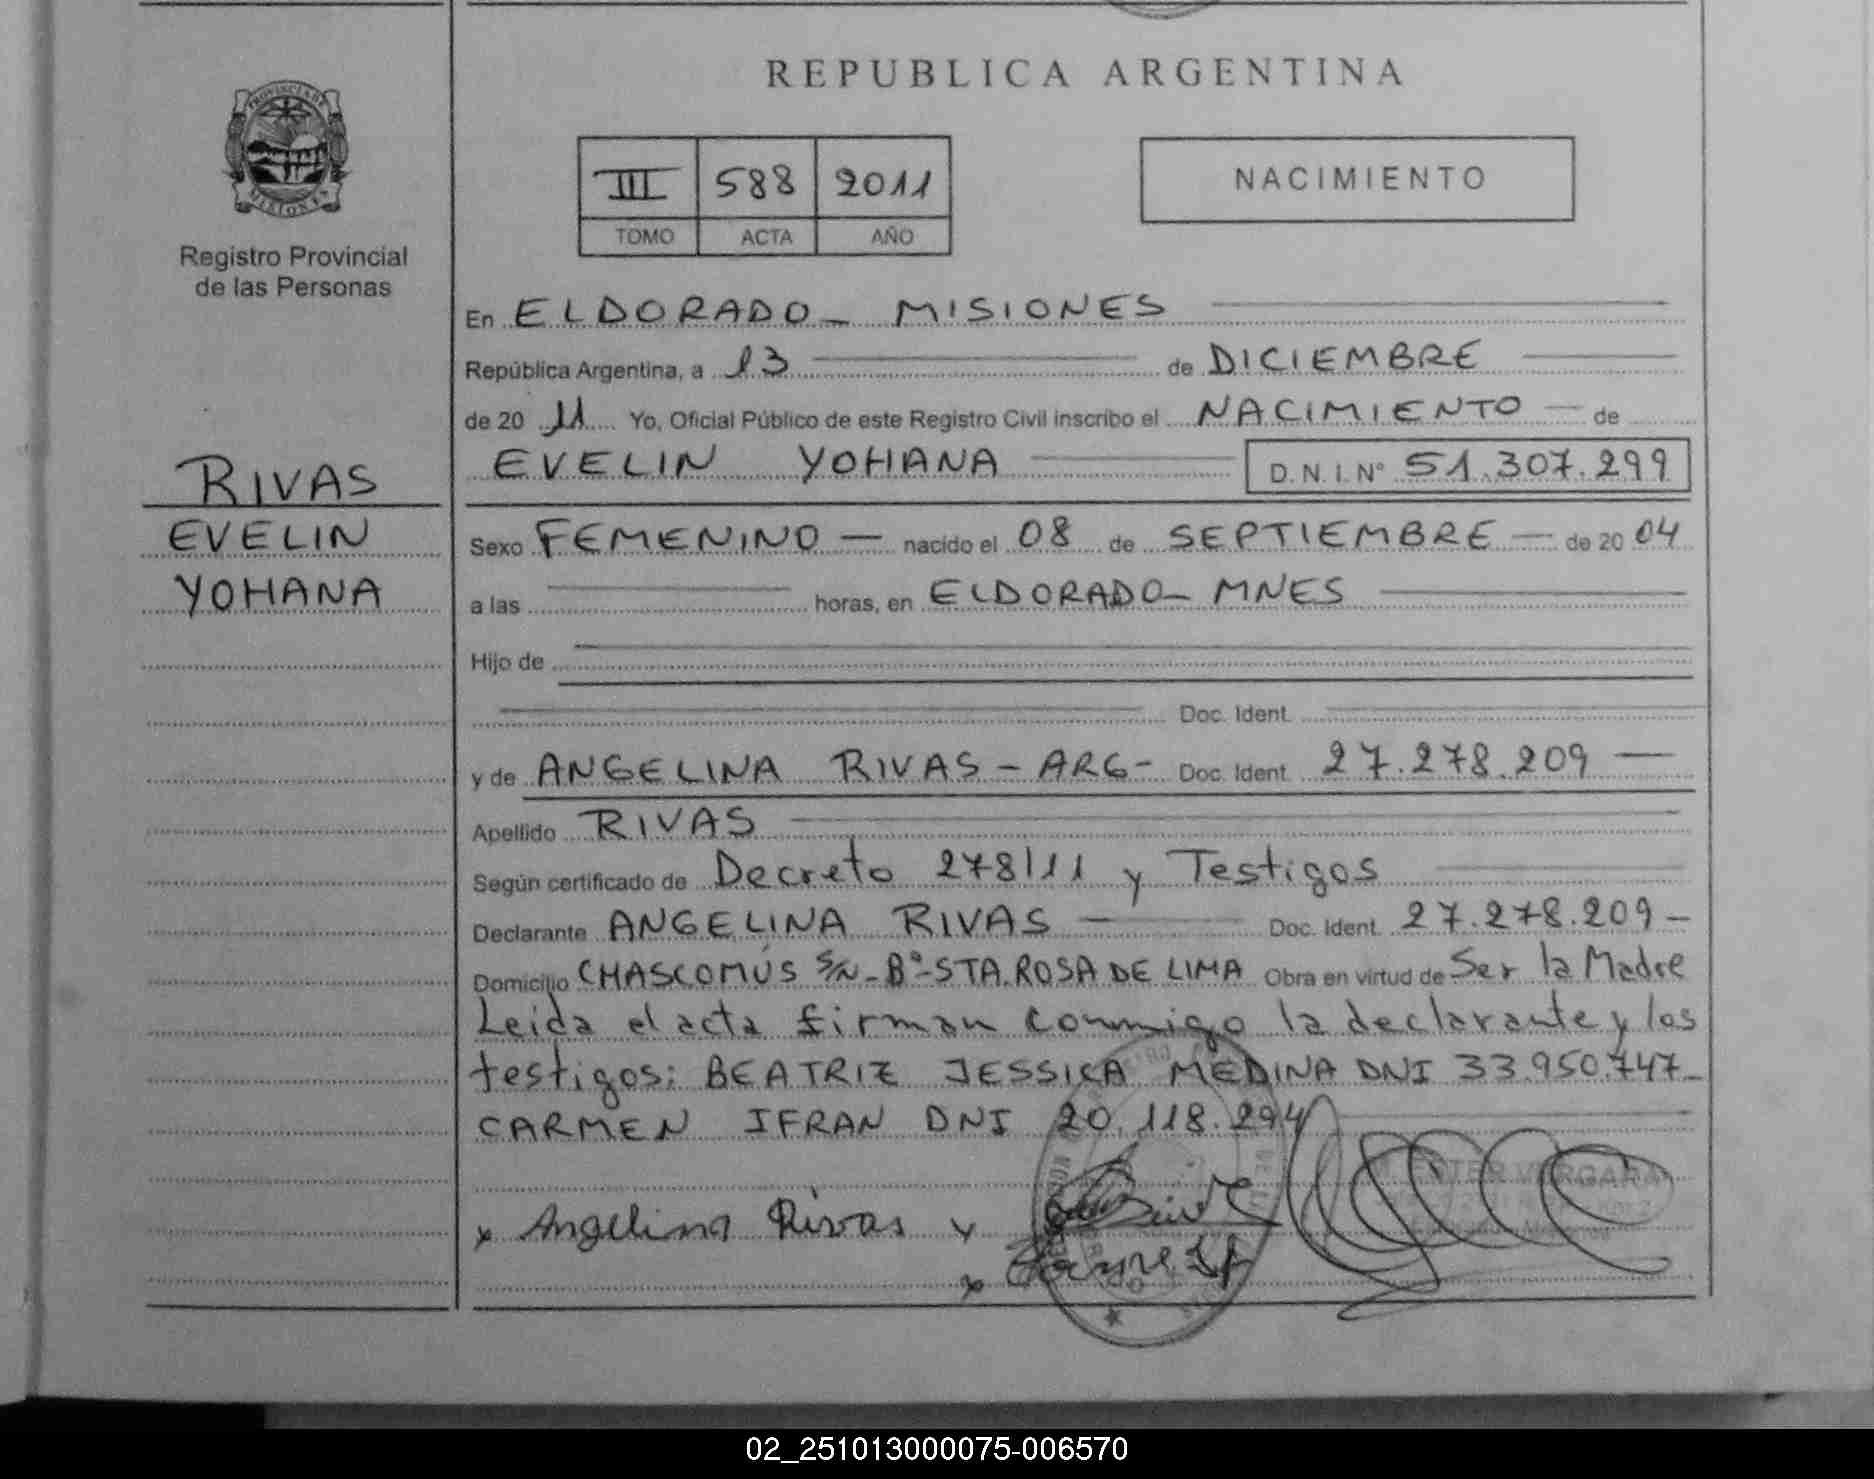 REPUBLICA ARGENTINA
PROVINCIA DE
MISIONES
Registro Provincial
de las Personas
III 588 2011
TOMO ACTA AÑO
NACIMIENTO
En ELDORADO - MISIONES
República Argentina, a 13 de DICIEMBRE
de 20 11 Yo, Oficial Público de este Registro Civil inscribo el NACIMIENTO de
EVELIN YOHANA D.N.I.Nº 51.307.299
RIVAS
EVELIN
YOHANA
Sexo FEMENINO nacido el 08 de SEPTIEMBRE de 20 04
a las horas, en ELDORADO - MNES
Hijo de
Doc. Ident.
y de ANGELINA RIVAS - ARG - Doc. Ident. 27.278.209
Apellido RIVAS
Según certificado de Decreto 278/11 y Testigos
Declarante ANGELINA RIVAS Doc. Ident. 27.278.209 -
Domicilio CHASCOMÚS S/N - Bº - STA. ROSA DE LIMA Obra en virtud de Ser la Madre
Leida el acta firman conmigo la declarante y los
testigos: BEATRIZ JESSICA MEDINA DNI 33.950.747 -
CARMEN IFRAN DNI 20.118.294
x Angelina Rivas x
x
VERGARA
02_251013000075-006570